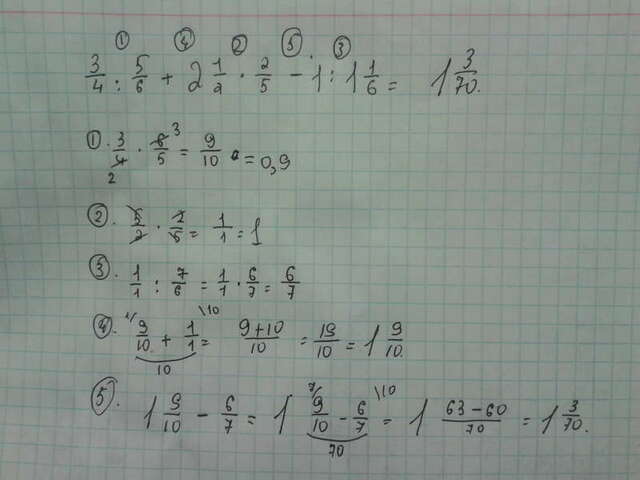 ① ④ ② ⑤ ③
3/4 : 5/6 + 2 1/2 · 2/5 - 1 : 1 1/6 = 1 3/70.
①. 3/4 · 6/5 = 9/10 = 0,9
3
2
②. 5/2 · 2/5 = 1/1 = 1
③. 1/1 : 7/6 = 1/1 · 6/7 = 6/7
④. 1/ 9/10 + 1/1 \10 = 9+10/10 = 19/10 = 1 9/10.
10
⑤. 1 9/10 - 6/7 = 1 7/ 9/10 - 6/7 \10 = 1 63-60/70 = 1 3/70.
70